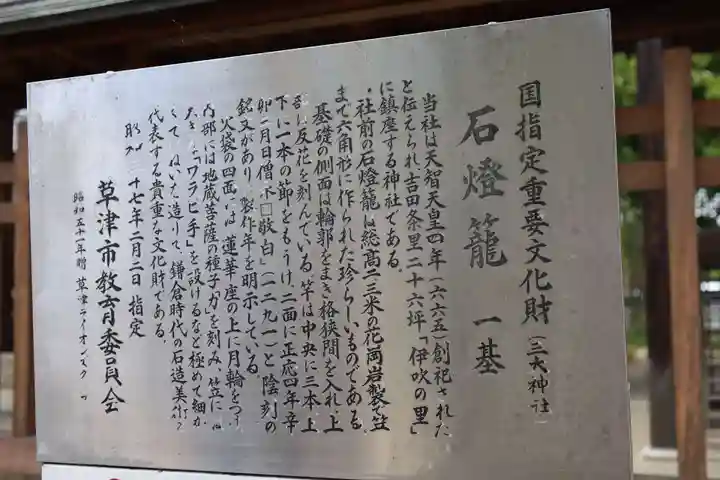 国指定重要文化財（三大神社）
石燈籠 一基
当社は天智天皇四年（六六五）創祀された
と伝えられ吉田条里二十六坪「伊吹の里」
に鎮座する神社である。
・社前の石燈籠は総高二三米の花岡岩製で笠
まで六角形に作られた珍らしいものである。
基礎の側面は輪郭をまき格狭間を入れ、上
反花を刻んでいる。竿は中央に三本、上
下に一本の節をもうけ、二面に正応四年辛
卯二月日僧 □敬白」（一二九一）と陰刻の
銘文があり、製作年を明示している。
火袋の四面には蓮華座の上に月輪を
内部には地蔵菩薩の種子「カ」を刻み、笠には
「ワラビ手」を設けるなど極めて細か
ぬいた造りで、鎌倉時代の石造美術
代表する貴重な文化財である。
昭 十七年二月二日 指定
草津市教育委員会
昭和五十一年贈 草津ライオンズク